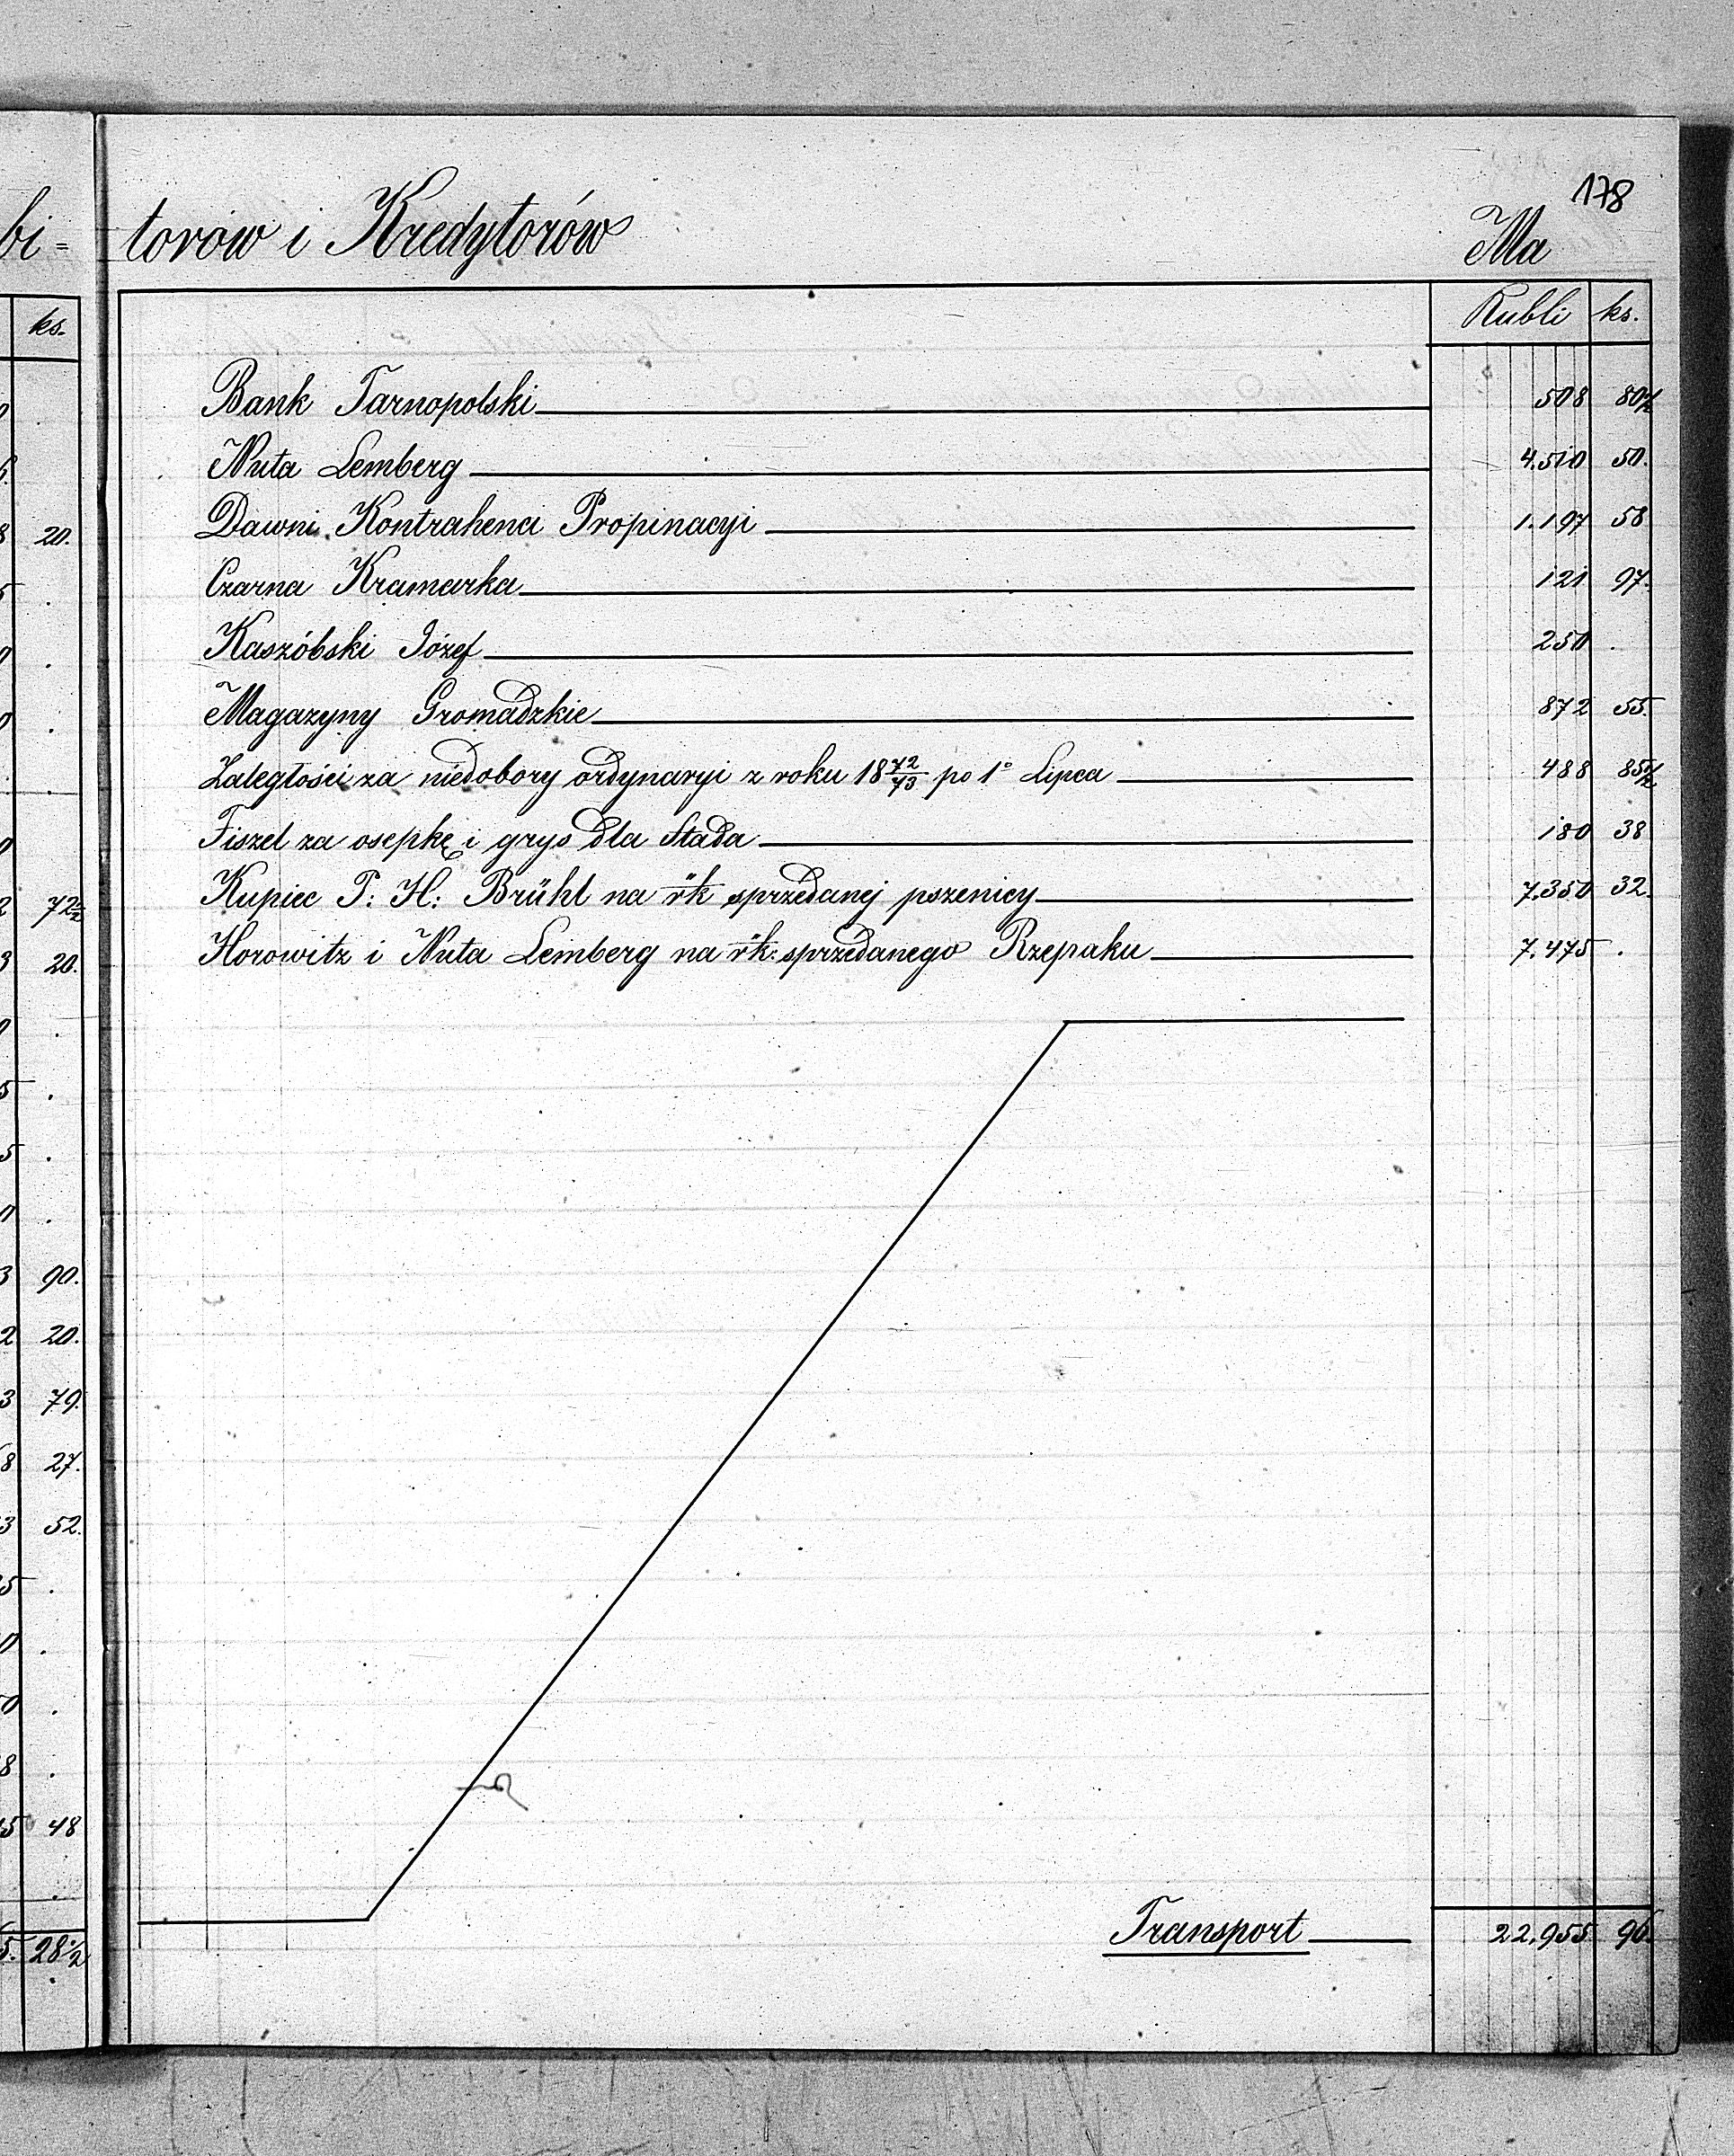 178
bi- torów i Kredytorów Ma
ks. Rubli ks.
Bank Tarnopolski 508 80 1/2
Nuta Lemberg 4.510 50.
20. Dawni Kontrahenci Propinacyi 1.197 58
Czarna Kramarka 121 97.
Kaszóbski Józef 250 .
Magazyny Gromadzkie 872 55.
Zaległości za niedobory ordynaryi z roku 18 72/73 po 1° Lipca 488 85 1/2
Fiszel za osepkę i grys dla Stada 180 38
72 1/2 Kupiec P: H: Brühl na rk sprzedanej pszenicy 7.350 32.
20. Horowitz i Nuta Lemberg na rk: sprzedanego Rzepaku 7.475 .
90.
20.
79.
27.
52.
48
28 1/2 Transport 22,955 96.